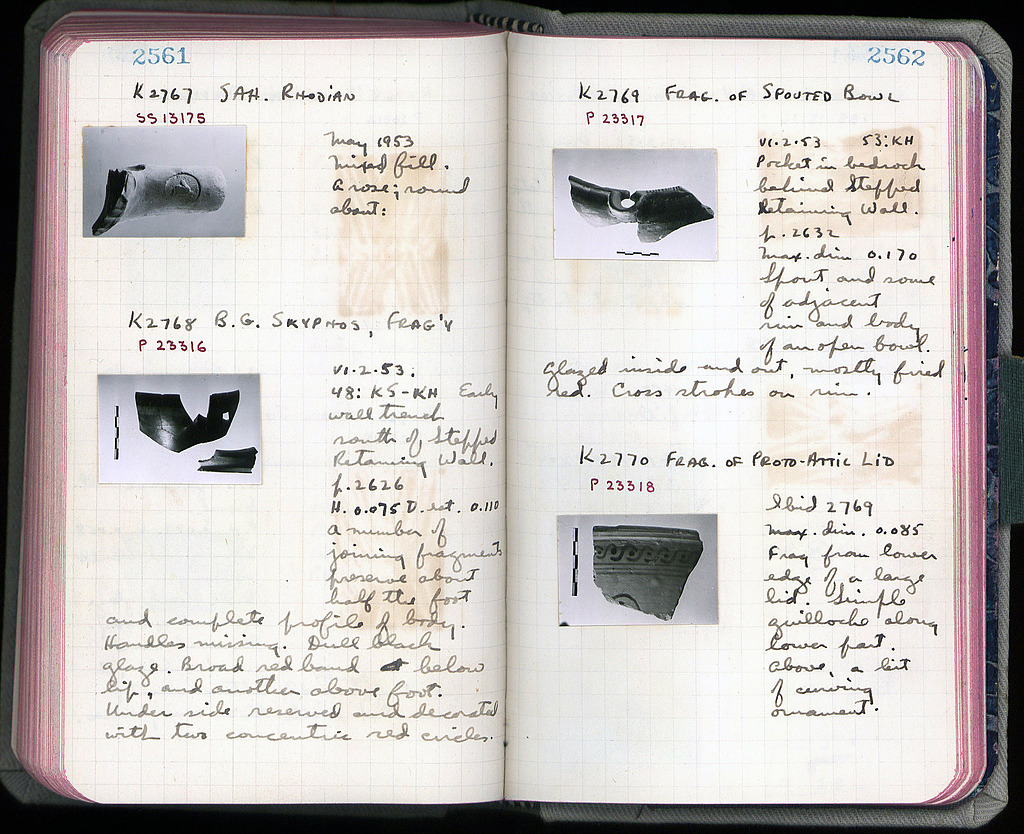 2561
K2767 SAH. RHODIAN
SS 13175
May 1953
Mixed fill.
A rose; round
about:
K2768 B.G. SKYPHOS, FRAG'Y
P 23316
VI.2.53.
48: KS-KH Early
wall trench
south of Stepped
Retaining Wall.
p. 2626
H. 0.075 D. est. 0.110
A number of
joining fragments
preserve about
half the foot
and complete profile of body.
Handles missing. Dull black
glaze. Broad red band below
lip, and another above foot.
Under side reserved and decorated
with two concentric red circles.
2562
K2769 FRAG. OF SPOUTED BOWL
P 23317
VI.2.53 53: KH
Pocket in bedrock
behind Stepped
Retaining Wall.
p. 2632
Max. dim 0.170
Spout and some
of adjacent
rim and body
of an open bowl.
Glazed inside and out, mostly fired
red. Cross strokes on rim.
K2770 FRAG. OF PROTO-ATTIC LID
P 23318
Ibid 2769
Max. dim. 0.085
Frag from lower
edge of a large
lid. Simple
guilloche along
lower part.
Above, a bit
of curving
ornament.